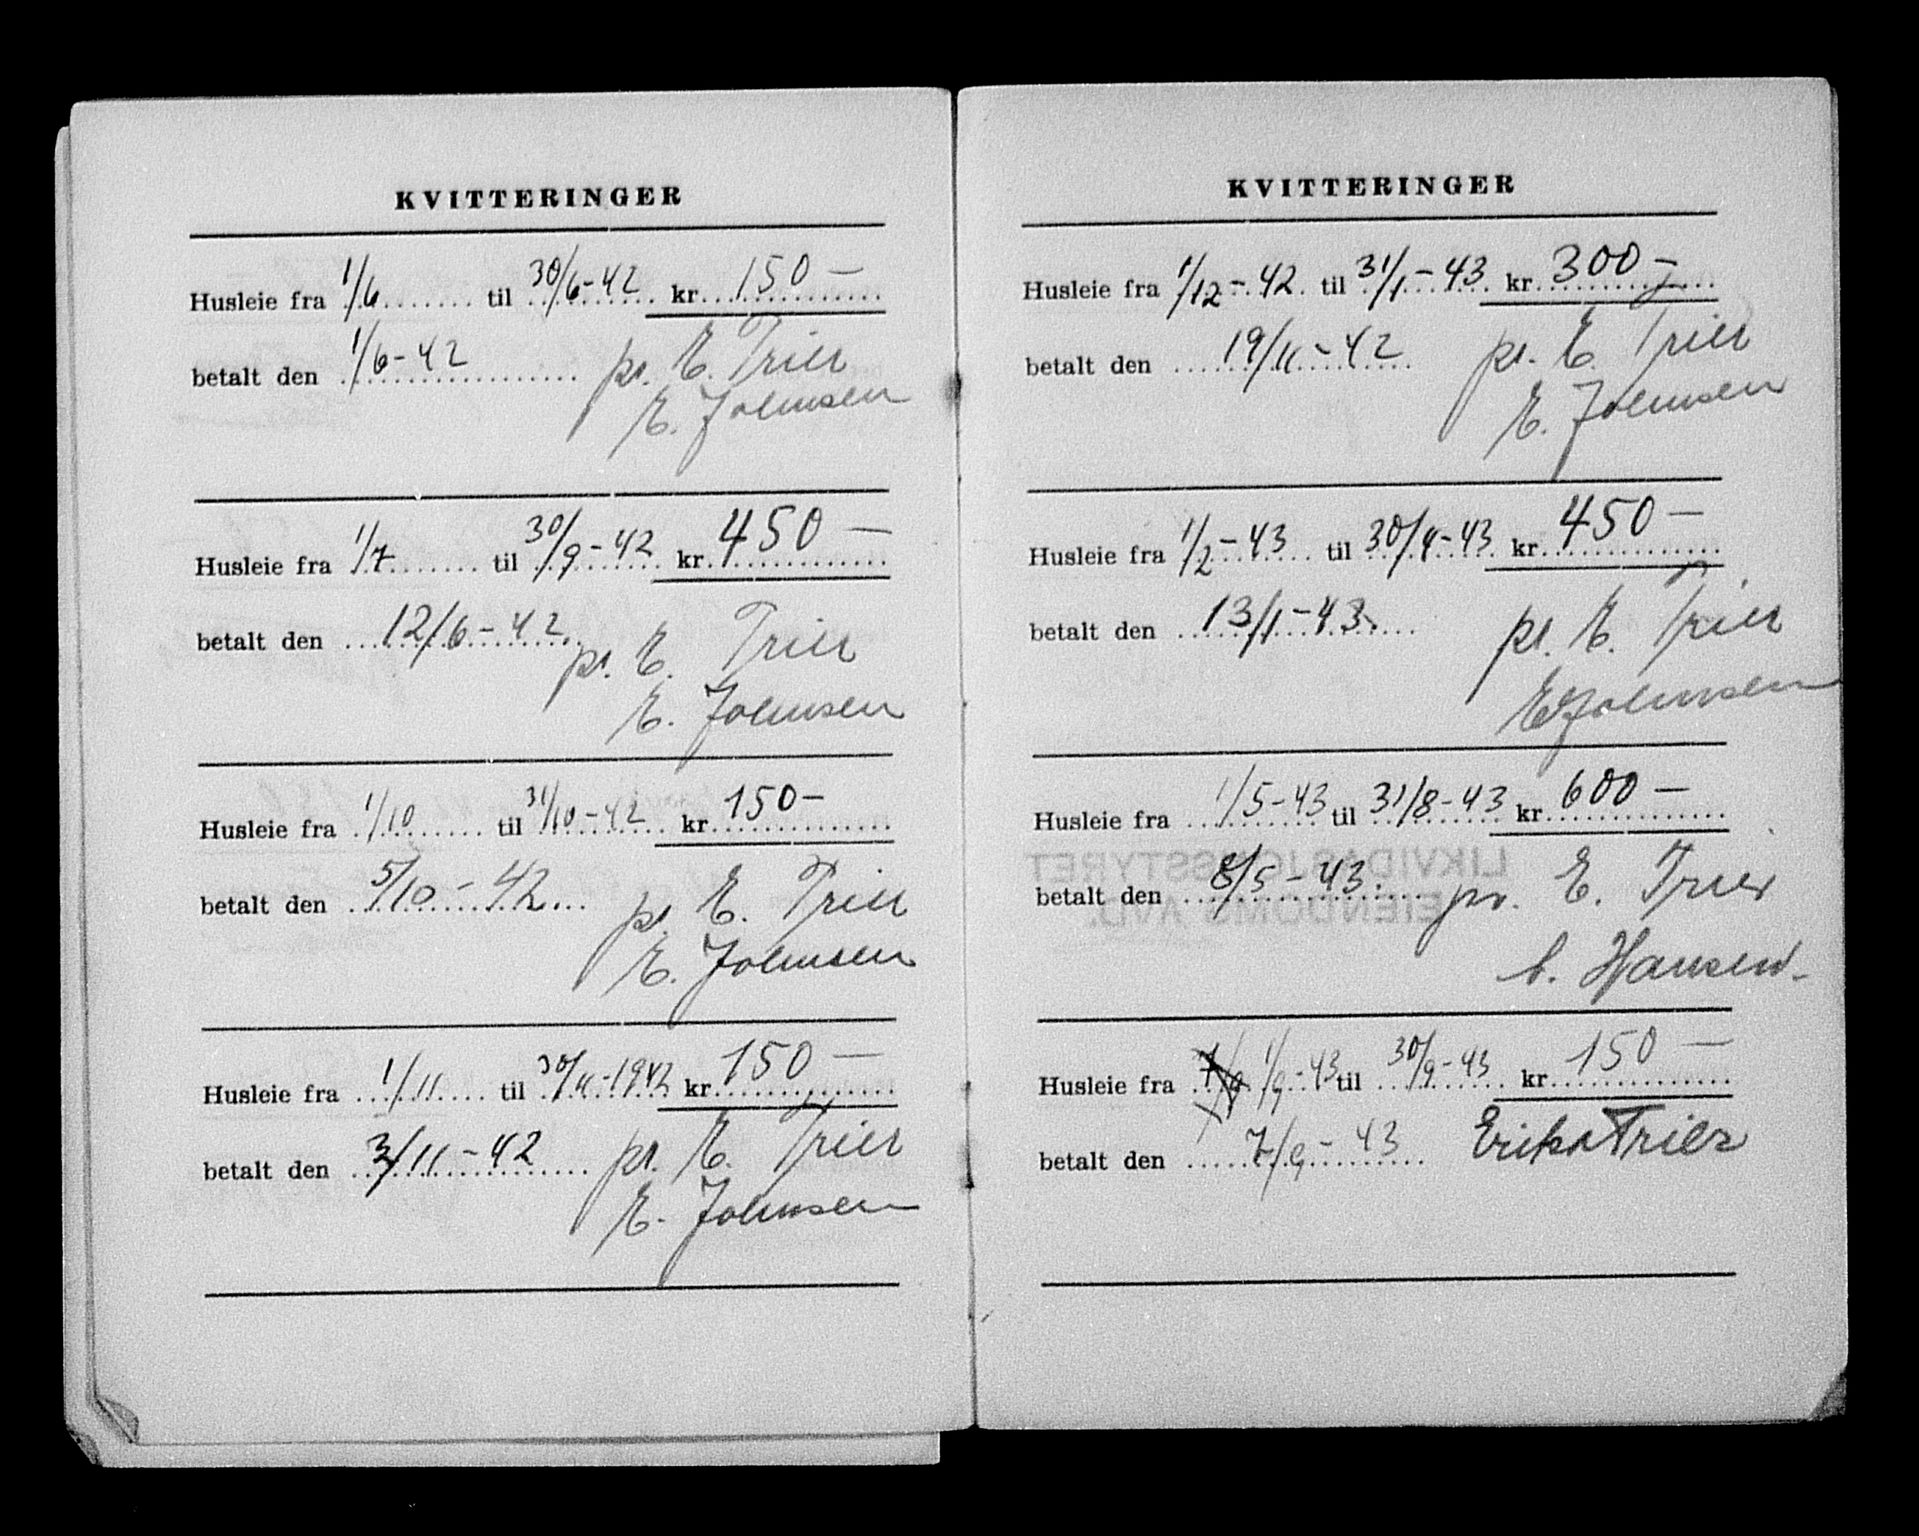 KVITTERINGER
Husleie fra 1/6 til 30/6-42 kr. 150 —
betalt den 1/6-42 pr. E. Trier
E. Johnsen
Husleie fra 1/7 til 30/9-42 kr. 450 —
betalt den 12/6-42. pr. E. Trier
E. Johnsen
Husleie fra 1/10 til 31/10-42 kr. 150 —
betalt den 5/10-42 pr. E. Trier
E. Johnsen
Husleie fra 1/11 til 30/11-1942 kr. 150 —
betalt den 3/11-42 pr. E. Trier
E. Johnsen
KVITTERINGER
Husleie fra 1/12-42 til 31/1-43 kr. 300 —
betalt den 19/11-42 pr. E. Trier
E. Johnsen
Husleie fra 1/2-43 til 30/4-43 kr. 450 —
betalt den 13/1-43. pr. E. Trier
E. Johnsen
Husleie fra 1/5-43 til 31/8-43 kr. 600 —
LIKVIDASJONSSTYRET
betalt den 8/5-43. pr. E. Trier
EIENDOMS AVD.
Hansen.
Husleie fra 1/9-43 til 30/9-43 kr. 150 —
betalt den 7/9-43 Erika Trier